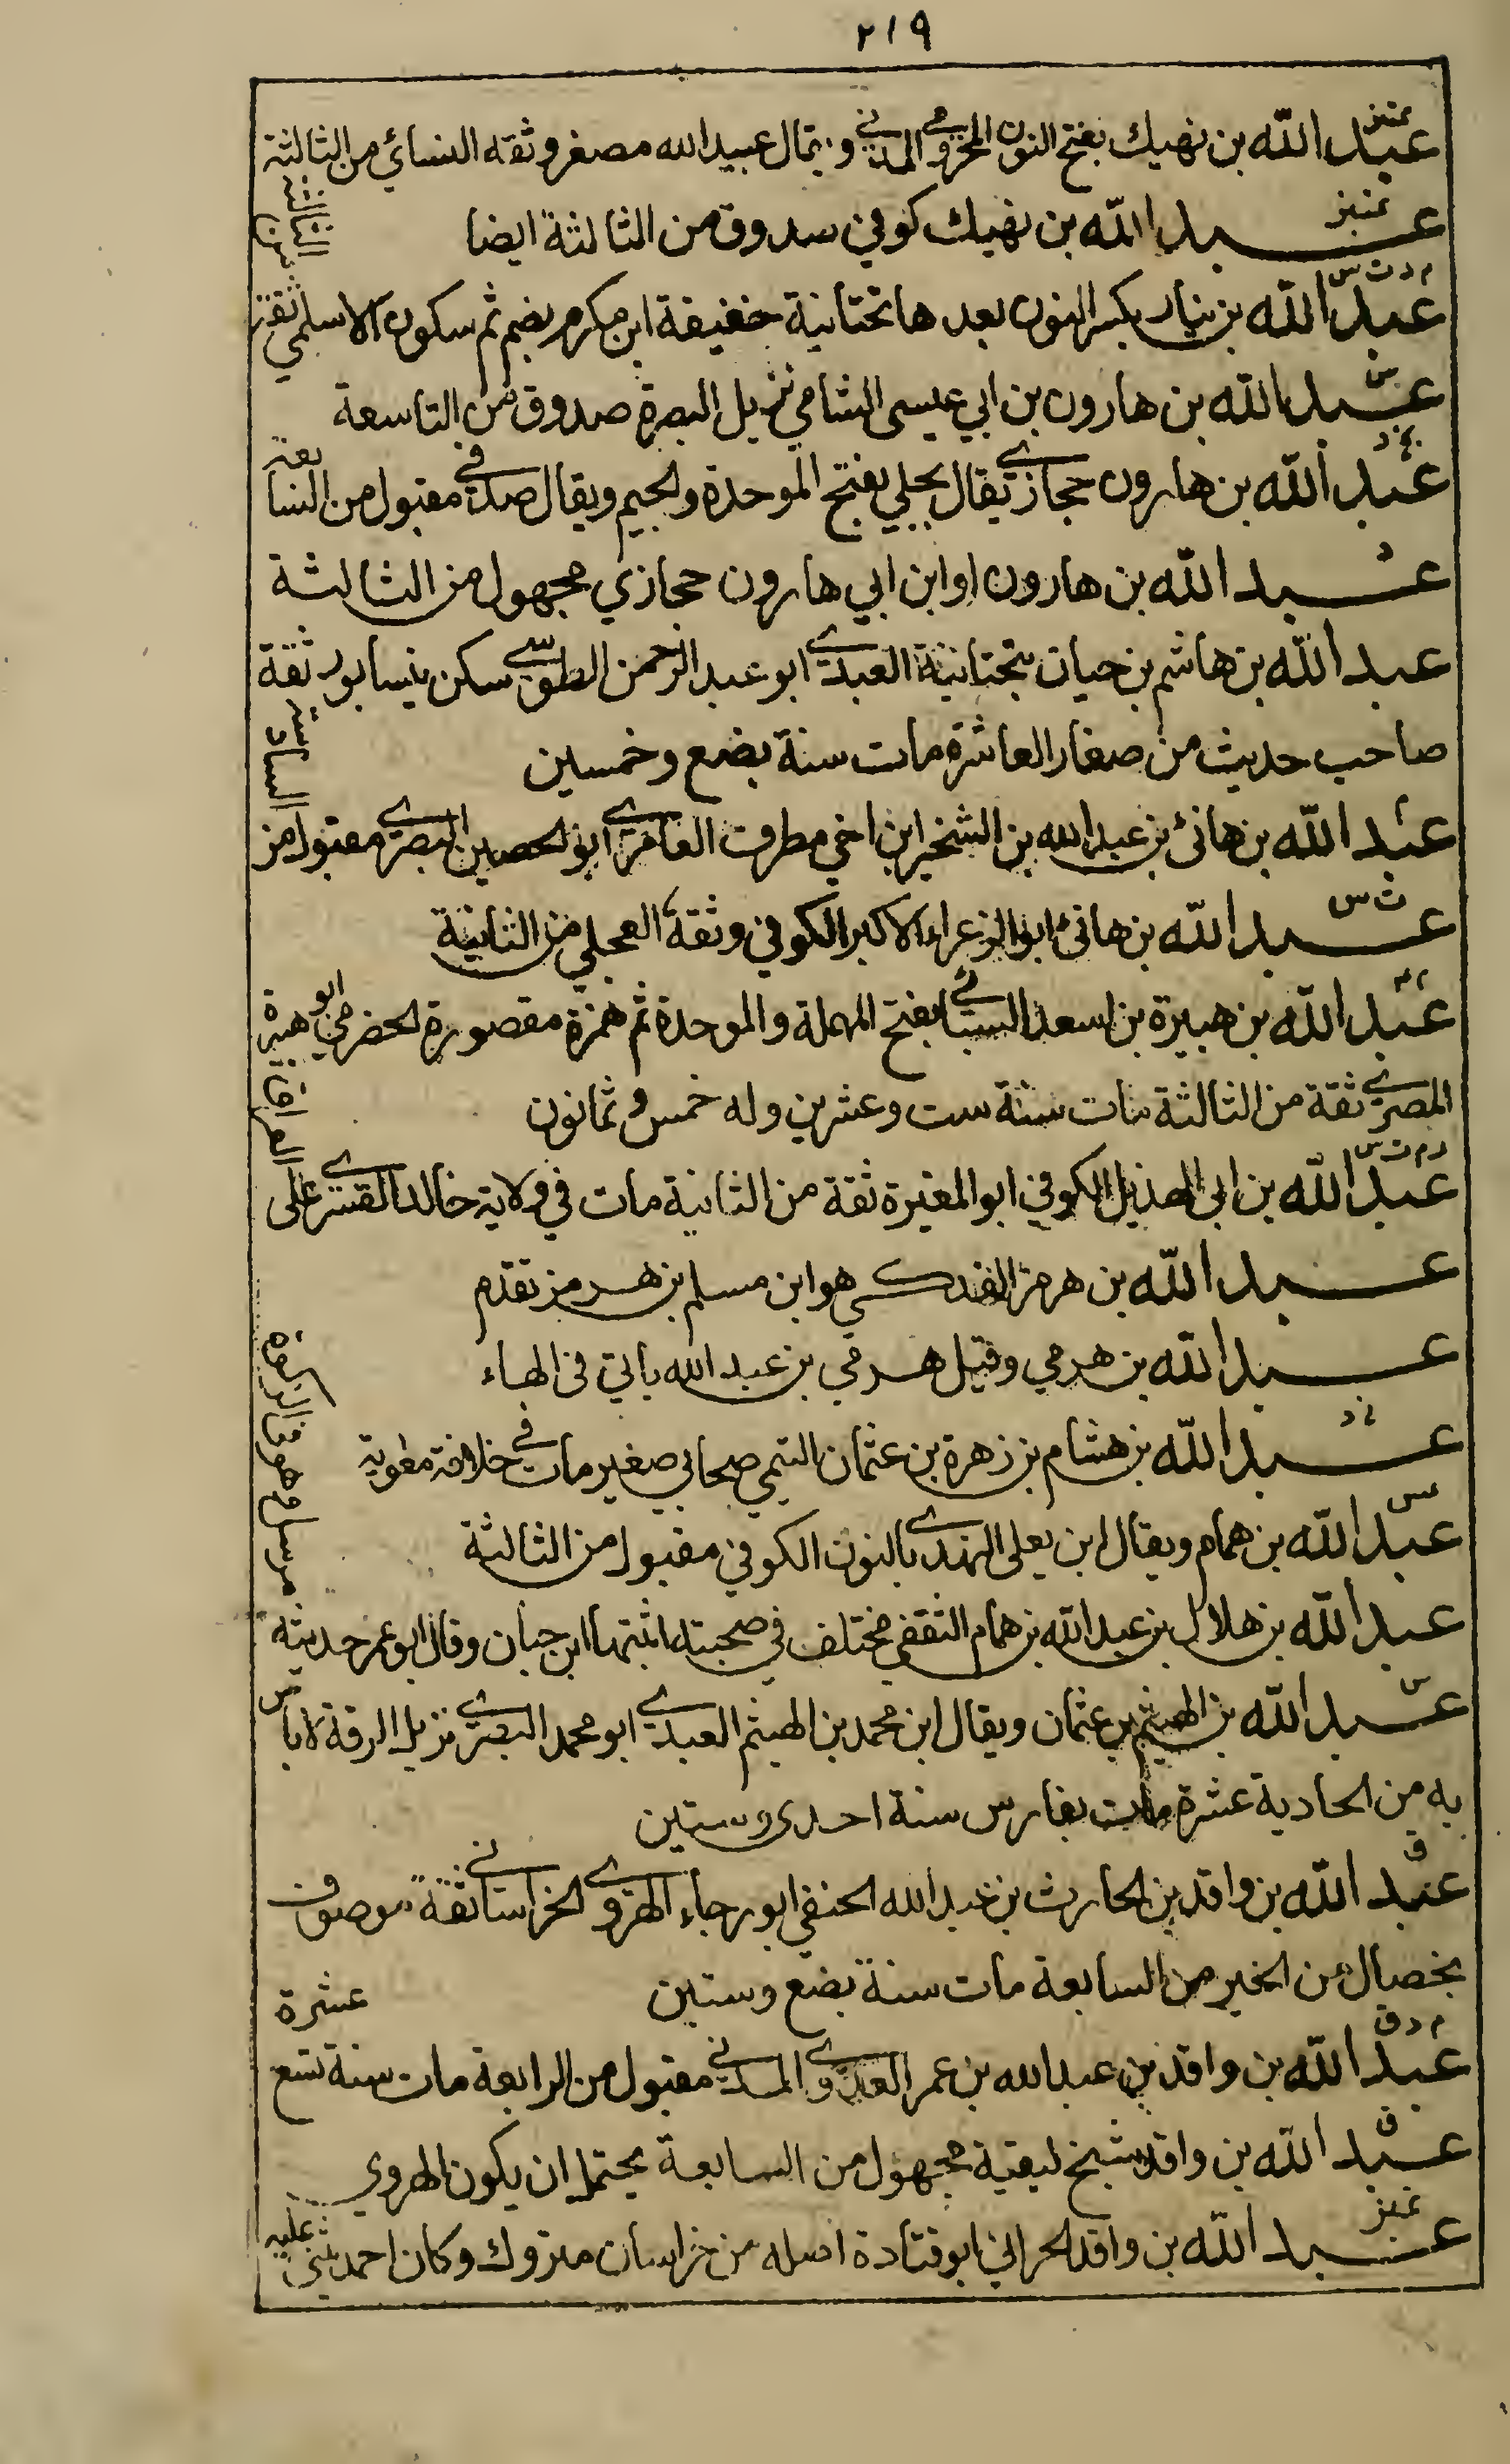 ٢١٩
تمييز
عبد الله بن نهيك بفتح النون المخزومي المدني ويقال عبيد الله مصغر وثقه النسائي من الثالثة
تمييز
عبد الله بن نهيك كوفي سدوق من الثالثة ايضا
م د ت س
عبد الله بن نيار بكسر النون بعدها تحتانية خفيفة ابن مكرم بضم ثم سكون الاسلمي ثقة من الثالثة
س
عبد الله بن هارون بن ابي عيسى الشامي نزيل البصرة صدوق من التاسعة
بخ د
عبد الله بن هارون حجازي يقال بجلي بفتح الموحدة والجيم ويقال صدفي مقبول من السابعة
د
عبد الله بن هارون او ابن ابي هارون حجازي مجهول من الثالثة
م
عبد الله بن هاشم بن حيان بتحتانية العبدي ابو عبد الرحمن الطوسي سكن نيسابور ثقة
صاحب حديث من صغار العاشرة مات سنة بضع وخمسين
عبد الله بن هانئ بن عبد الله بن الشخير ابن اخي مطرف العامري ابو الحصين البصري مقبول من السادسة
ت س
عبد الله بن هانئ ابو الزعراء الاكبر الكوفي وثقه العجلي من الثانية
م عم
عبد الله بن هبيرة بن اسعد السبائي بفتح المهملة والموحدة ثم همزة مقصورة الحضرمي ابو هبيرة
المصري ثقة من الثالثة مات سنة ست وعشرين وله خمس وثمانون
ر م ت س
عبد الله بن ابي الهذيل الكوفي ابو المغيرة ثقة من الثانية مات في ولاية خالد القسري على العراق
عبد الله بن هرمز الفدكي هو ابن مسلم بن هرمز تقدم
عبد الله بن هرمي وقيل هرمي بن عبد الله ياتي في الهاء
خ د
عبد الله بن هشام بن زهرة بن عثمان التيمي صحابي صغير مات في خلافة معوية
عس
عبد الله بن همام ويقال ابن يعلى النهدي بالنون الكوفي مقبول من الثالثة
عبد الله بن هلال بن عبد الله بن همام الثقفي مختلف في صحبته اثبتها ابن حبان وقال ابو عمر حديثه
مرسل وهو في الزكوة
س
عبد الله بن الهيثم بن عثمان ويقال ابن محمد بن الهيثم العبدي ابو محمد البصري نزيل الرقة لا باس
به من الحادية عشرة مات بفارس سنة احدى وستين
ق
عبد الله بن واقد بن الحارث بن عبد الله الحنفي ابو رجاء الهروي الخراساني ثقة موصوف
بخصال من الخير من السابعة مات سنة بضع وستين
م د ق
عبد الله بن واقد بن عبد الله بن عمر العدوي المدني مقبول من الرابعة مات سنة تسع عشرة
ق
عبد الله بن واقد شيخ لبقية مجهول من السابعة يحتمل ان يكون الهروي
تمييز
عبد الله بن واقد الحراني ابو قتادة اصله من خراسان متروك وكان احمد يثني عليه